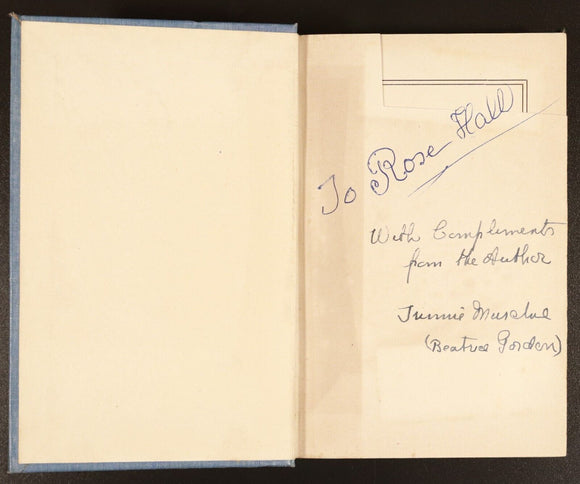 To Rose Hall
With Compliments
from the Author
(Beatrice Gordon)